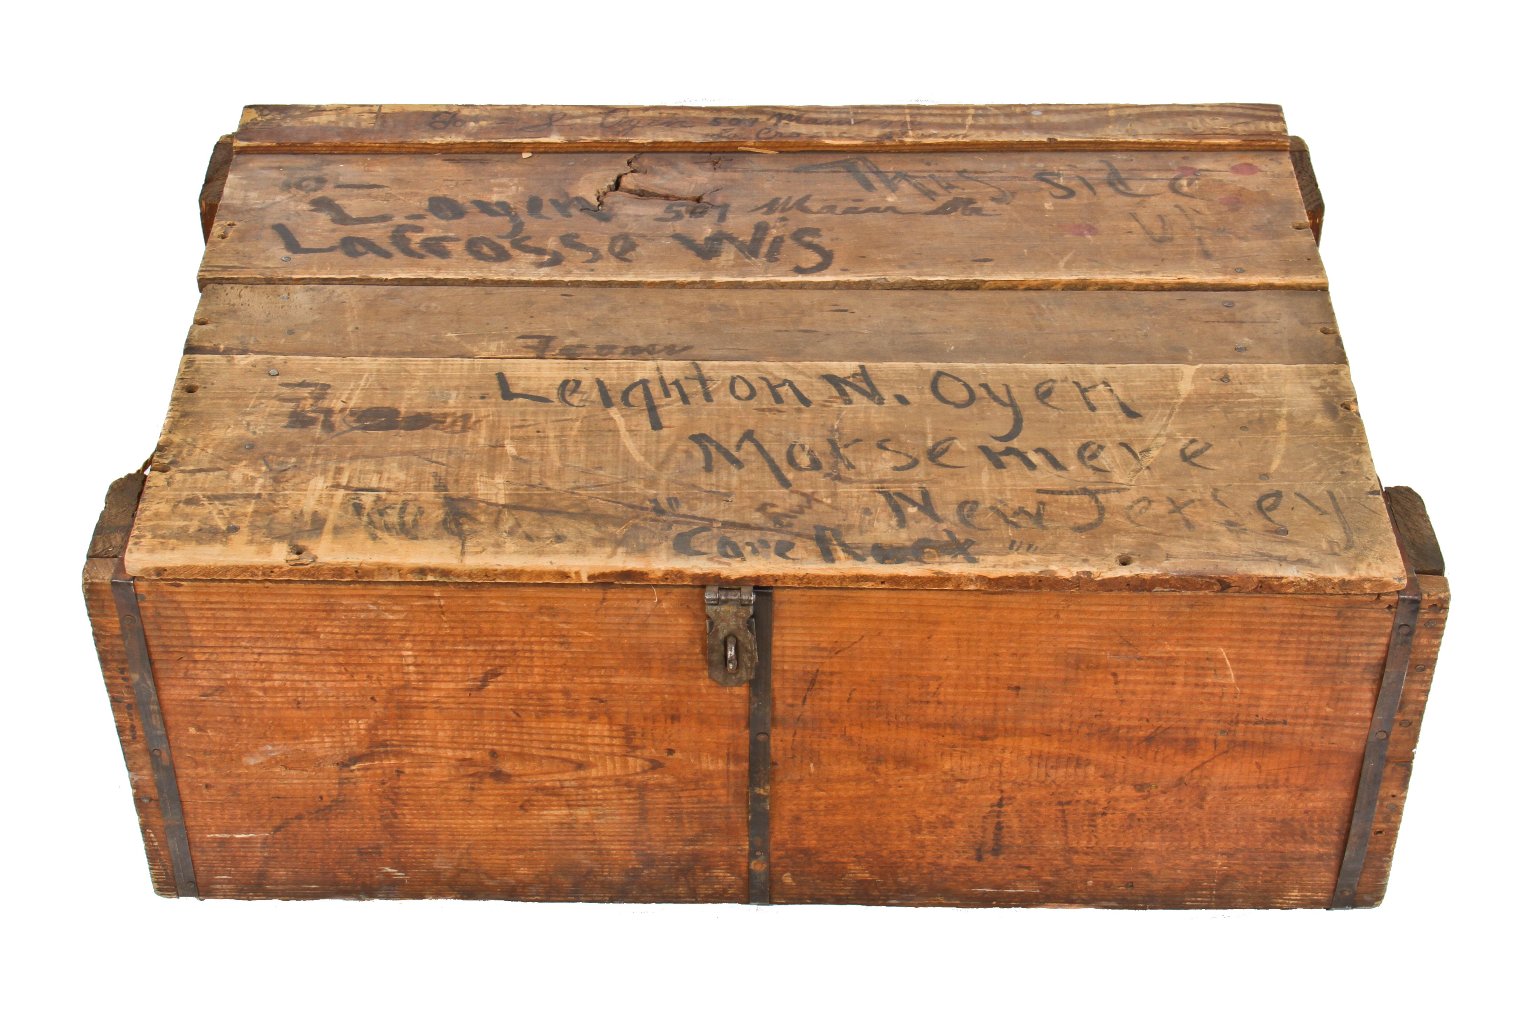 507 Main
La Crosse
This side
L. oyen 507 Main St
up
LaCrosse Wis
From
Leighton N. Oyen
From
Morsemere
New Jersey
"Care Kock"